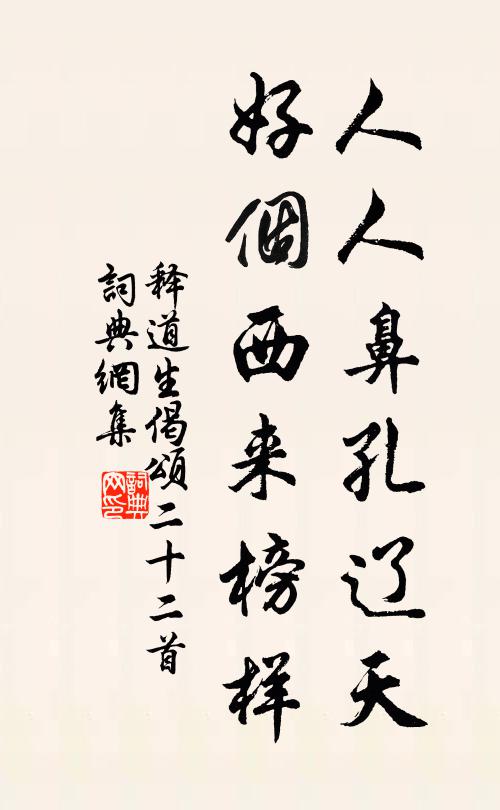 人人鼻孔辽天
好個西来榜样
释道生偈頌二十二首
詞典網集
詞典網印